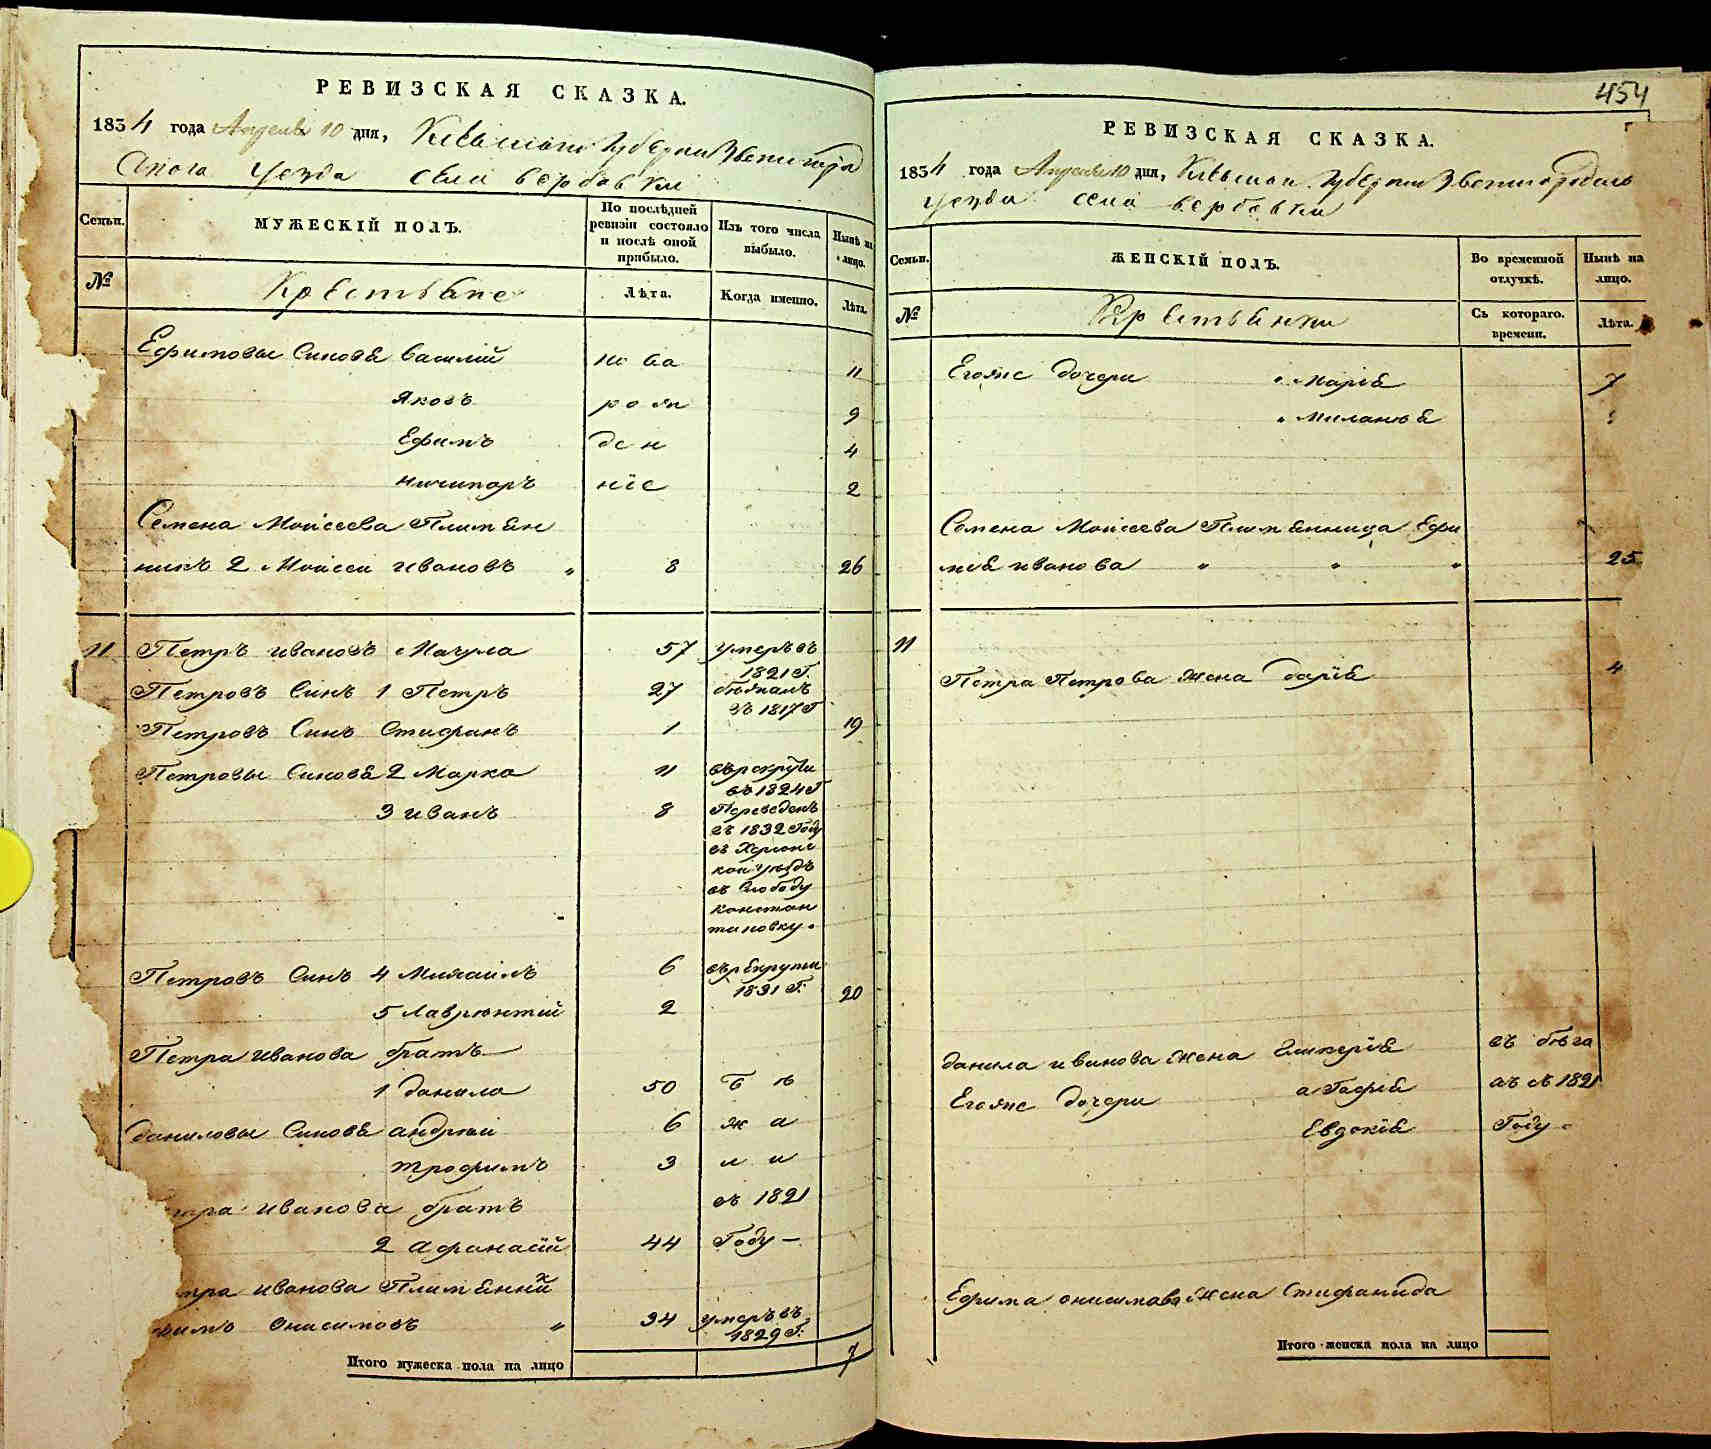 РЕВИЗСКАЯ СКАЗКА.
1834 года Апреля 10 дня, Киевской Губернии Звенигород
ского Уезда села вербовки
Семьи.
МУЖЕСКІЙ ПОЛЪ.
По послѣдней ревизіи состояло и послѣ оной прибыло.
Изъ того числа выбыло.
Нынѣ на лицо.
№
Крестьяне
Лѣта.
Когда именно.
Лѣта.
Ефимовы Синовя василій но ва 11
Яковъ рож 9
Ефимъ ден 4
ничипоръ ніе 2
Семена Моисеева Племян
никъ 2 Моисеи ивановъ 8 26
11 Петръ ивановъ Мачула 57 умеръ въ
1821 Г.
Петровъ Синъ 1 Петръ 27 бѣжалъ
въ 1817 Г
Петровъ Синъ Стифанъ 1 19
Петровы Синовя 2 Марко 11 въ рекрути
въ 1824 Г
3 иванъ 8 Переведенъ
въ 1832 Году
въ Херсонс
кои уездъ
въ Слободу
констан
тиновку.
Петровъ Синъ 4 Михаилъ 6 въ рекрути
1831 Г.
5 Лаврентий 2 20
Петра иванова братъ
1 данило 50 б ѣ
даниловы Синовя андреи 6 ж а
трофимъ 3 л и
тра иванова братъ въ 1821
2 афанасій 44 Году —
тра иванова Племянник
фимъ Онисимовъ 34 умеръ въ
1829 Г.
Итого мужеска пола на лицо 7
454
РЕВИЗСКАЯ СКАЗКА.
1834 года Апреля 10 дня, Киевской Губернии Звенигородскаго
уезда села вербовки
Семьи.
ЖЕНСКІЙ ПОЛЪ.
Во временной отлучкѣ.
Нынѣ на лицо.
№
Крестьянки
Съ котораго времени.
Лѣта.
Егожъ дочери Марія 7
Миланія
Семена Моисеева Племянница Ефи
мія иванова 25
11
Петра Петрова жена дарія 4
данила иванова жена Гликерія въ бѣга
Егожъ дочери агафія ахъ съ 1821
Евдокія Году
Ефима онисимова жена Стифанида
Итого женска пола на лицо